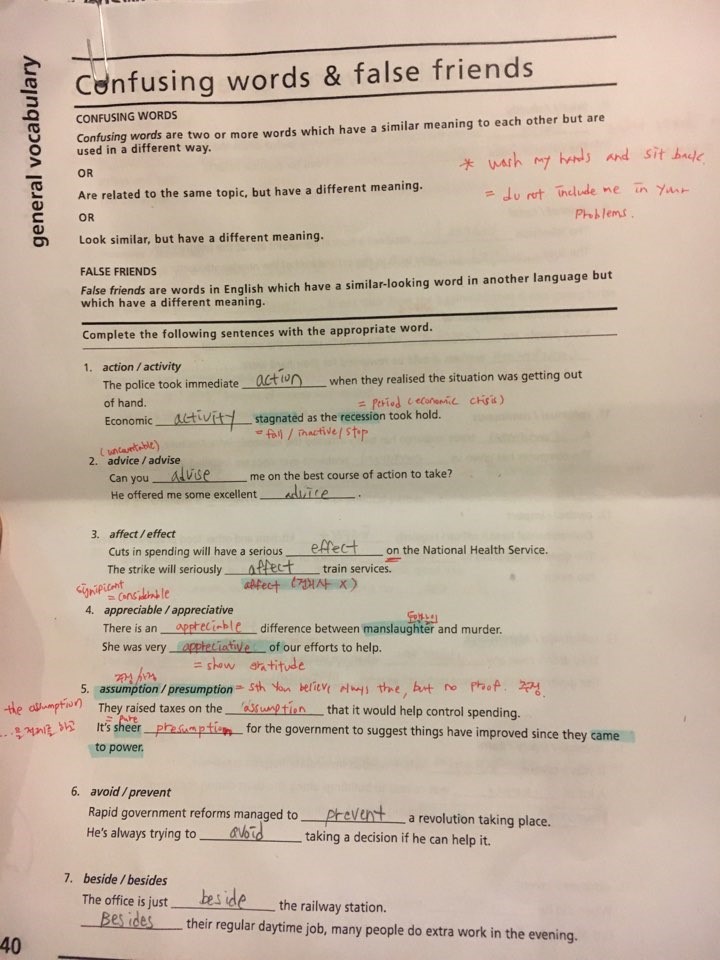 general vocabulary
Confusing words & false friends
CONFUSING WORDS
Confusing words are two or more words which have a similar meaning to each other but are
used in a different way.
OR
Are related to the same topic, but have a different meaning.
OR
Look similar, but have a different meaning.
* wash my hands and sit back.
= do not include me in your
Problems.
FALSE FRIENDS
False friends are words in English which have a similar-looking word in another language but
which have a different meaning.
Complete the following sentences with the appropriate word.
1. action / activity
The police took immediate action when they realised the situation was getting out
of hand.
= Period (economic crisis)
Economic activity stagnated as the recession took hold.
= fall / inactive / stop
(uncountable)
2. advice / advise
Can you advise me on the best course of action to take?
He offered me some excellent advice.
3. affect / effect
Cuts in spending will have a serious effect on the National Health Service.
The strike will seriously affect train services.
affect (전치사 X)
significant
= considerable
4. appreciable / appreciative
There is an appreciable difference between manslaughter and murder.
She was very appreciative of our efforts to help.
= show gratitude
5. assumption / presumption = sth You believe always true, but no proof. 추정
the assumption
They raised taxes on the assumption that it would help control spending.
= Pure
It's sheer presumption for the government to suggest things have improved since they came
to power.
6. avoid / prevent
Rapid government reforms managed to prevent a revolution taking place.
He's always trying to avoid taking a decision if he can help it.
7. beside / besides
The office is just beside the railway station.
Besides their regular daytime job, many people do extra work in the evening.
40